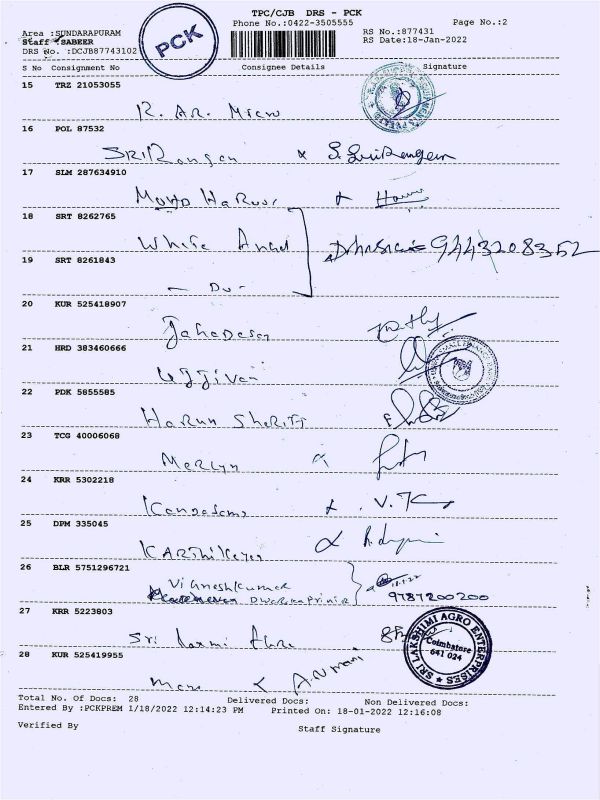 TPC/CJB DRS - PCK
Phone No.:0422-3505555 Page No.:2
PCK
Area :SUNDARAPURAM RS No.:877431
Staff :SABEER RS Date:18-Jan-2022
DRS No. :DCJB87743102
S No Consignment No Consignee Details Signature
15 TRZ 21053055
R. AR.
16 POL 87532
SRI Rangan x
17 SLM 287634910
Mohd Haroor
18 SRT 8262765
White Angel 9443208352
19 SRT 8261843
— Do —
20 KUR 525418907
21 HRD 383460666
Ujjivan
22 PDK 5855585
Harun Sheriff
23 TCG 40006068
Merlyn
24 KRR 5302218
Kandasamy V.K
25 DPM 335045
KARthikeyen
26 BLR 5751296721
Vigneshkumar
9787200200
27 KRR 5223803
Sri Laxmi
SRI LAKSHIMI AGRO ENTERPRISES
Coimbatore
641 024
28 KUR 525419955
A.N mani
Total No. Of Docs: 28 Delivered Docs: Non Delivered Docs:
Entered By :PCKPREM 1/18/2022 12:14:23 PM Printed On: 18-01-2022 12:16:08
Verified By Staff Signature